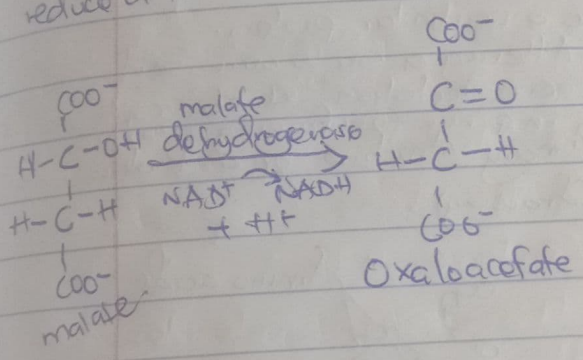 reduce
COO⁻
H-C-OH
H-C-H
COO⁻
malate
malate
dehydrogenase
NAD⁺ NADH
+ H⁺
COO⁻
C=O
H-C-H
COO⁻
Oxaloacetate